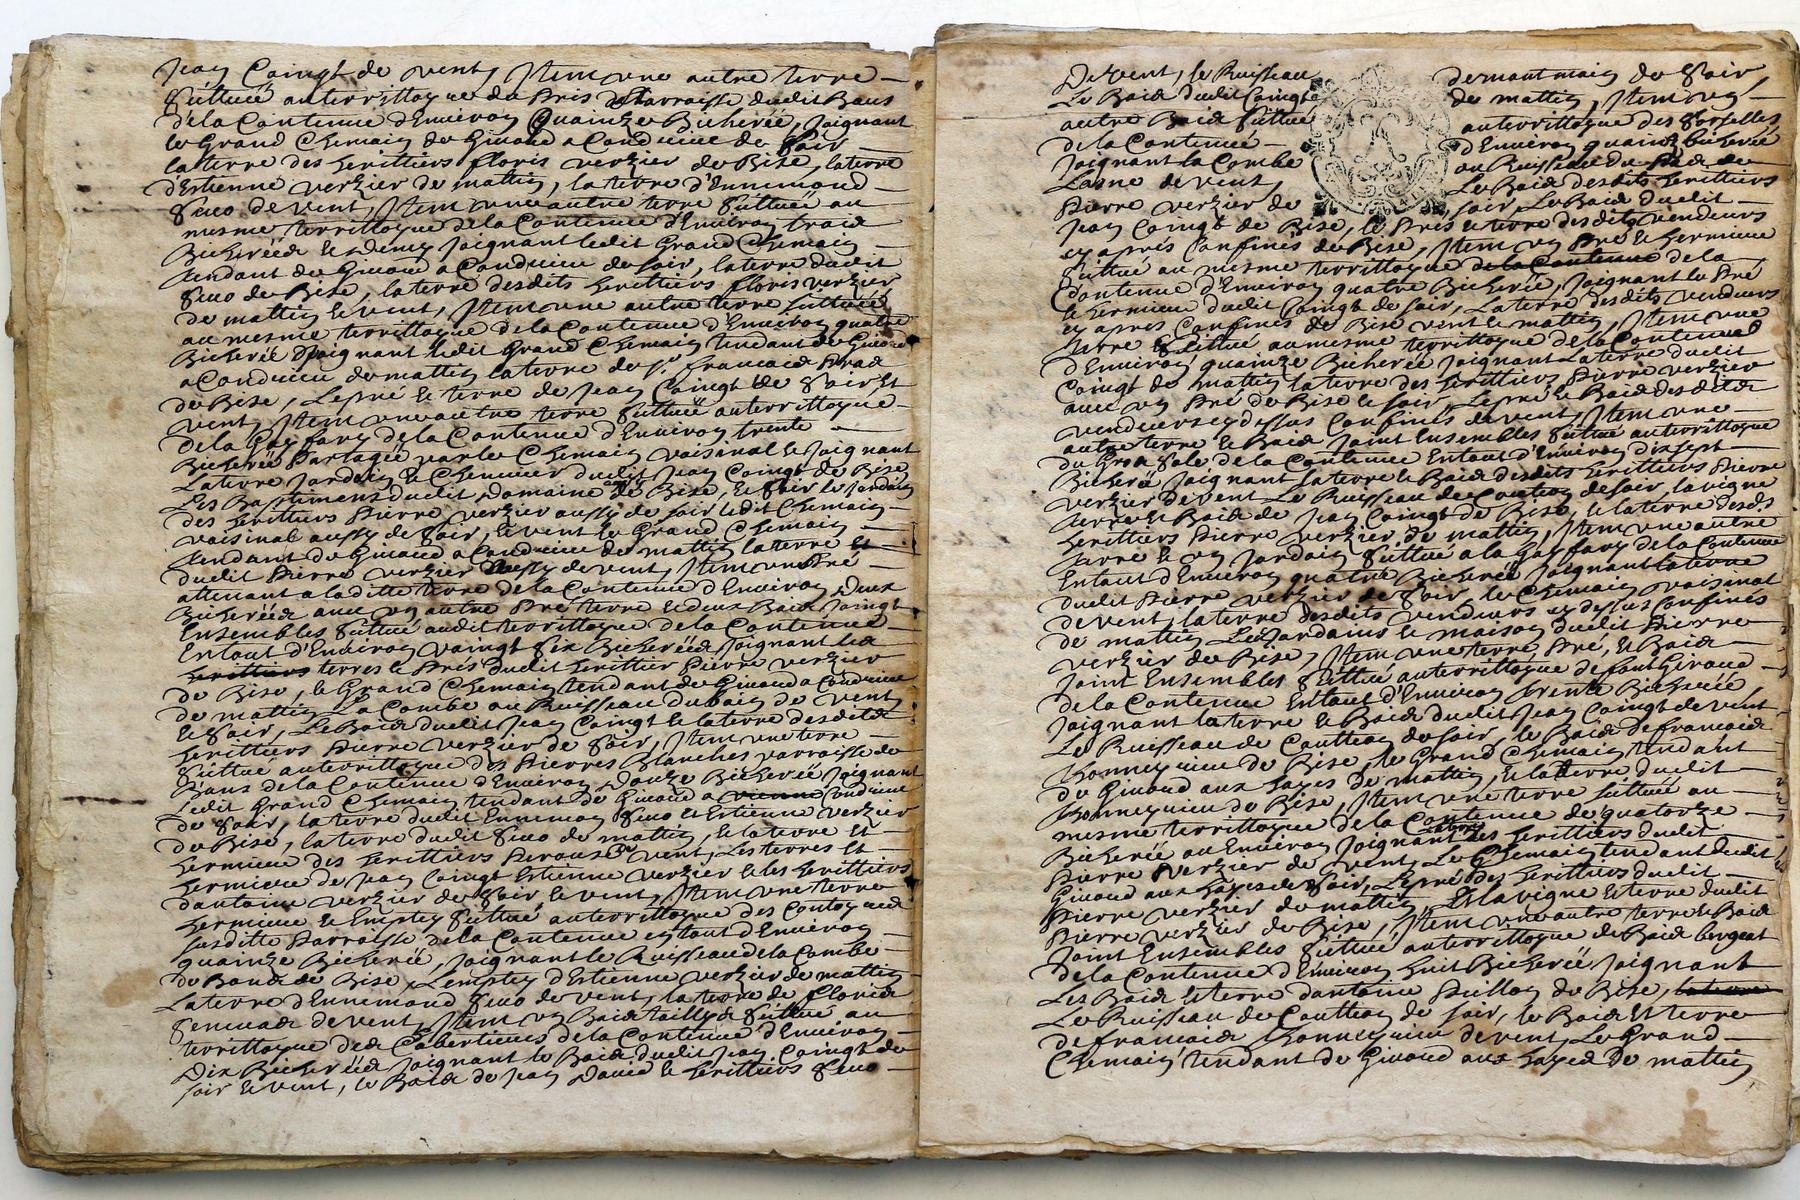 Jean Coingt de vent, Item une autre terre
scittuée au territtoyre du Pris parroisse dudit Bans
de la Contenue d'Enviroy Quainze Bicherée, Joignant
le Grand Chemain de Givord a Condrieu de soir
la terre des herittiers floris verzier de Bise, la terre
d'Estienne verzier de mattin, la terre d'Ennemond
de vent, Item une autre terre scittuée au
mesme territtoyre de la Contenue d'Enviroy trois
Bicherées et demy Joignant ledit Grand Chemain
tendant de Givord a Condrieu de soir, la terre dudit
de Bise, la terre desdits herittiers floris verzier
de mattin et vent, Item une autre terre scittuée
au mesme territtoyre de la Contenue d'Enviroy quatre
Bicherée Joignant ledit Grand Chemain tendant de Givord
a Condrieu de mattin la terre du Sr. francois
de Bise, Le pré et terre de Jean Coingt de soir et
vent, Item une autre terre scittuée au territtoyre
de la Gayfary de la Contenue d'Enviroy trente
Bicherée Partagée par le Chemain voisinal et Joignant
La terre Jardain et Chenevier dudit Jean Coingt de Bise
Les Bastimens dudit Domaine de Bise, et soir le Jardain
des herittiers Pierre verzier aussy de soir ledit Chemain
voisinal aussy de soir, et vent le Grand Chemain
tendant de Givord a Condrieu de mattin la terre
dudit Pierre verzier aussy de vent, Item un Pré
attenant a la ditte terre de la Contenue d'Enviroy Deux
Bicherées avec un autre Pré terre et deux Bois Joingt
Ensembles scittué audit territtoyre de la Contenue
Entout d'Enviroy vaingt six Bicherées Joignant les
herittiers terres et Pris dudit herittier Pierre verzier
de Bise, le Grand Chemain tendant de Givord a Condrieu
de mattin La Combe ou Ruisseau du de vent
et soir, Le Bois dudit Jean Coingt et la terre desdits
herittiers Pierre verzier de soir, Item une terre
scittué au territtoyre des Pierres Blanches parroisse de
Bans de la Contenue d'Enviroy Douze Bicherée Joignant
ledit Grand Chemain tendant de Givord a vienne Condrieu
de soir, la terre dudit Ennemond et Estienne verzier
de Bise, la terre dudit de mattin, et la terre et
hermieue des herittiers vent, Les terres et
hermieue de Jean Coingt Estienne verzier et les herittiers
dantoine verzier de soir et vent, Item une terre
hermieue et Emptey scittué au territtoyre des Contoyues
susditte Parroisse de la Contenue en tout d'Enviroy
quainze Bicherée, Joignant le Ruisseau de la Combe
de de Bise, L'emptey d'Estienne verzier de mattin
La terre d'Ennemond de vent, la terre de floris
de vent, Item un Bois Taillys scittué au
territtoyre des de la Contenue d'Enviroy
Dix Bicherées Joignant le Bois dudit Jean Coingt de
soir et vent, le Bois de Jean David et herittiers
De vent, le Ruisseau demont main de soir
Le Bois dudit Coingt de mattin, Item un
autre Bois scittué au territtoyre des
de la Contenue d'Enviroy quainze bicherée
Joignant la Combe ou Ruisseau du
Lasne de vent, Le Bois desdits herittiers
Pierre verzier de soir, Le Bois dudit
Jean Coingt de Bise, le Pris et terre desdits vendeurs
cy apris Confinés de Bise, Item un Pré et hermieue
scittué au mesme territtoyre de la Contenue de la
Contenue d'Enviroy quatre Bicherée, Joignant le Pré
et hermieue dudit Coingt de soir, La terre desdits vendeurs
cy apres Confinés de Bise vent et mattin, Item une
terre scittué au mesme territtoyre de la Contenue
d'Enviroy quainze Bicherée Joignant La terre dudit
Coingt de mattin la terre des herittiers Pierre verzier
avec un Pré de Bise et soir, Le pré et Bois desdits
vendeurs cy dessus Confinés de vent, Item une
autre terre et Bois Joint Ensembles scittué au territtoyre
du Gros de la Contenue Entout d'Enviroy dissept
Bicherée Joignant la terre et Bois desdits herittiers Pierre
verzier de vent Le Ruisseau de Couttoy de soir, la vigne
terre et Bois de Jean Coingt de Bise, et la terre desds.
herittiers Pierre verzier de mattin, Item une autre
terre et un Jardain scittué a la Gayfary de la Contenue
Entout d'Enviroy quatre Bicherée Joignant la terre
dudit Pierre verzier de soir, le Chemain voisinal
de vent, la terre desdits vendeurs cy dessus Confinés
de mattin Les Jardains et maison dudit Pierre
verzier de Bise, Item une terre, Pré, et Bois
Joint Ensembles scittué au territtoyre de font Giraud
de la Contenue Entout d'Enviroy trente Bicherée,
Joignant la terre et Bois dudit Jean Coingt de vent
Le Ruisseau de Couttoy de soir, le Bois de francois
de Bise, le Grand Chemain tendant
de Givord aux hayes de mattin, et la terre dudit
de Bise, Item une terre scittuée au
mesme territtoyre de la Contenue de quatorze
Bicherée ou Enviroy Joignant la terre des herittiers dudit
Pierre verzier de vent, Le Chemain tendant dudit
Givord aux hayes de soir, Le pré des herittiers dudit
Pierre verzier de mattin, Et la vigne et terre dudit
Pierre verzier de Bise, Item une autre terre et Bois
Joint Ensembles scittué au territtoyre de Bois bergeat
de la Contenue d'Enviroy huit Bicherée Joignant
Les Bois et terre dantoine de Bise, la terre
Le Ruisseau de Couttoy de soir, le Bois et terre
de francois de vent, Le Grand
Chemain tendant de Givord aux hayes de mattin